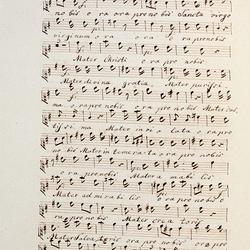 nobis ora pro nobis Sancta virgo
virginum ora ora ora pro nobis
Mater Christi ora pro nobis
Mater divina gratia Mater purissi
ma ora pro nobis ora pro nobis Mater
issima Mater inviolata ora pro
nobis Mater intemerata ora pro nobis
ora pro nobis Mater amabilis
Mater admirabilis ora pro nobis
ora pro nobis Mater Creatoris
Mater Salvatoris ora pro nobis ora pro